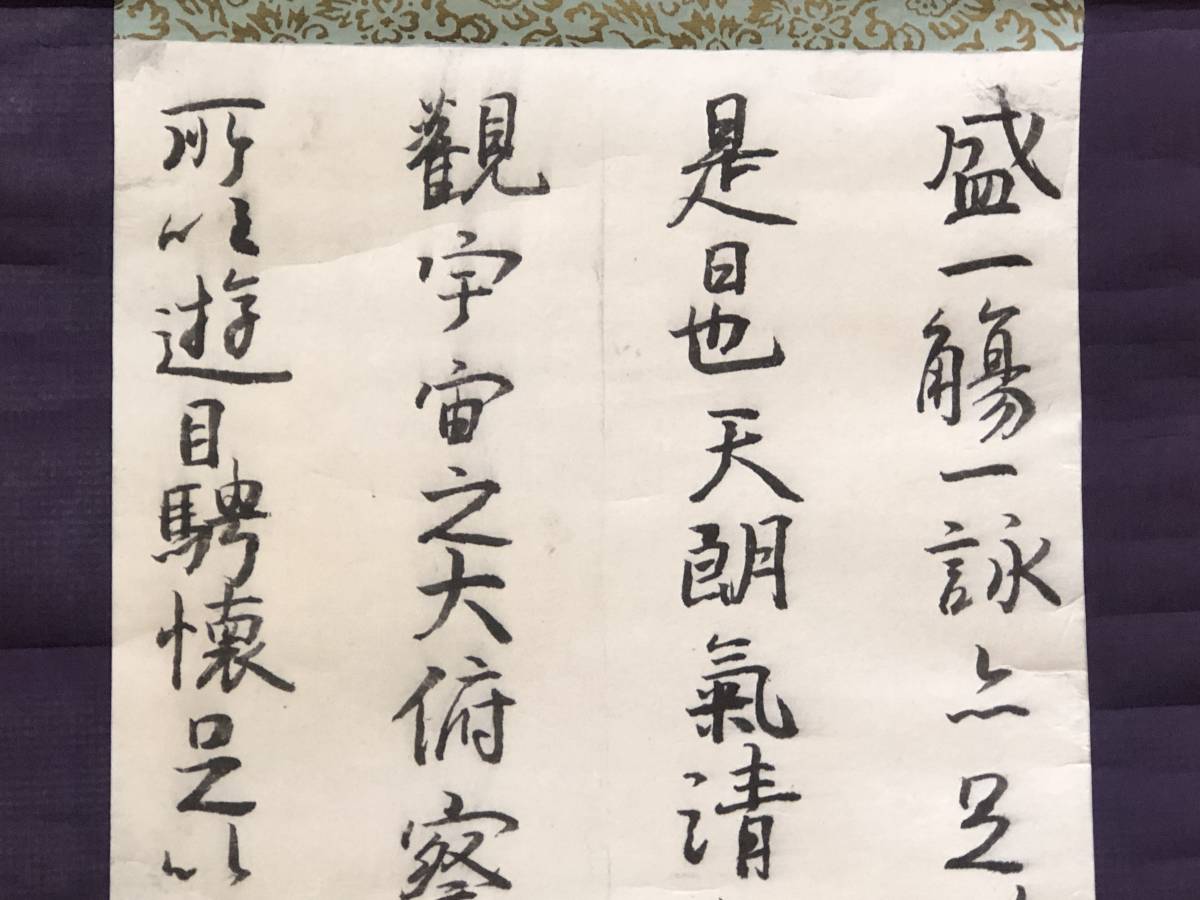 盛一觴一詠亦足
是日也天朗氣清
觀宇宙之大俯察
所以遊目騁懷足以